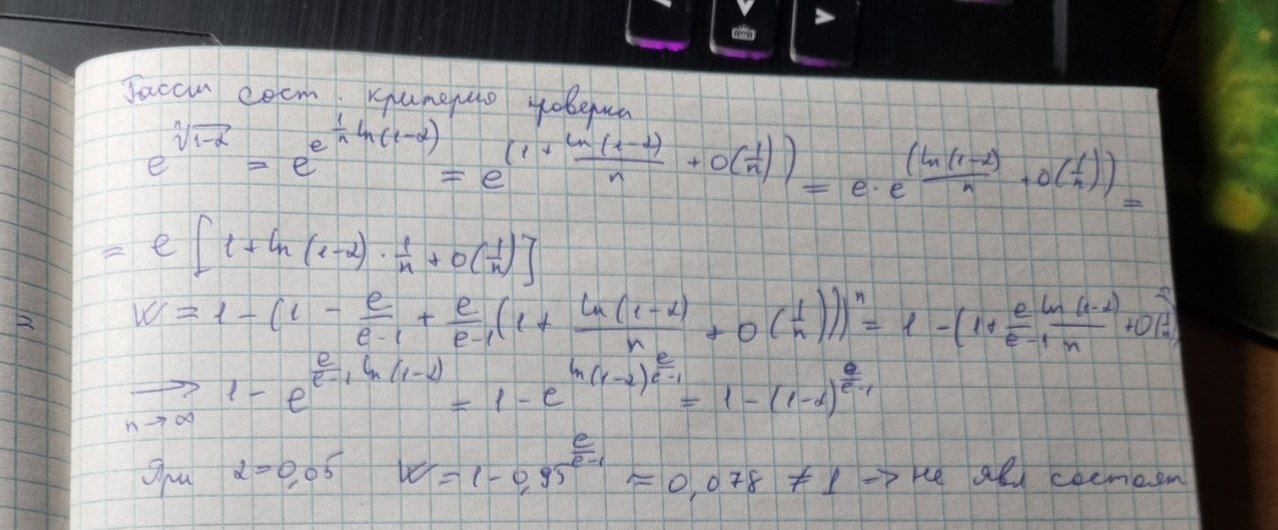 Рассм сост. критерия проверки
e^{\sqrt[n]{1-α}} = e^{e^{\frac{1}{n} ln(1-α)}} = e^{(1 + \frac{ln(1-α)}{n} + o(\frac{1}{n}))} = e · e^{(\frac{ln(1-α)}{n} + o(\frac{1}{n}))} =
= e [1 + ln(1-α) · \frac{1}{n} + o(\frac{1}{n})]
= W = 1 - (1 - \frac{e}{e-1} + \frac{e}{e-1}(1 + \frac{ln(1-α)}{n} + o(\frac{1}{n})))^n = 1 - (1 + \frac{e}{e-1} \frac{ln(1-α)}{n} + o(\frac{1}{n})
\xrightarrow[n→∞]{} 1 - e^{\frac{e}{e-1} ln(1-α)} = 1 - e^{ln(1-α)^{\frac{e}{e-1}}} = 1 - (1-α)^{\frac{e}{e-1}}
При α=0,05 W = 1 - 0,95^{\frac{e}{e-1}} ≈ 0,078 ≠ 1 → не явл состоят